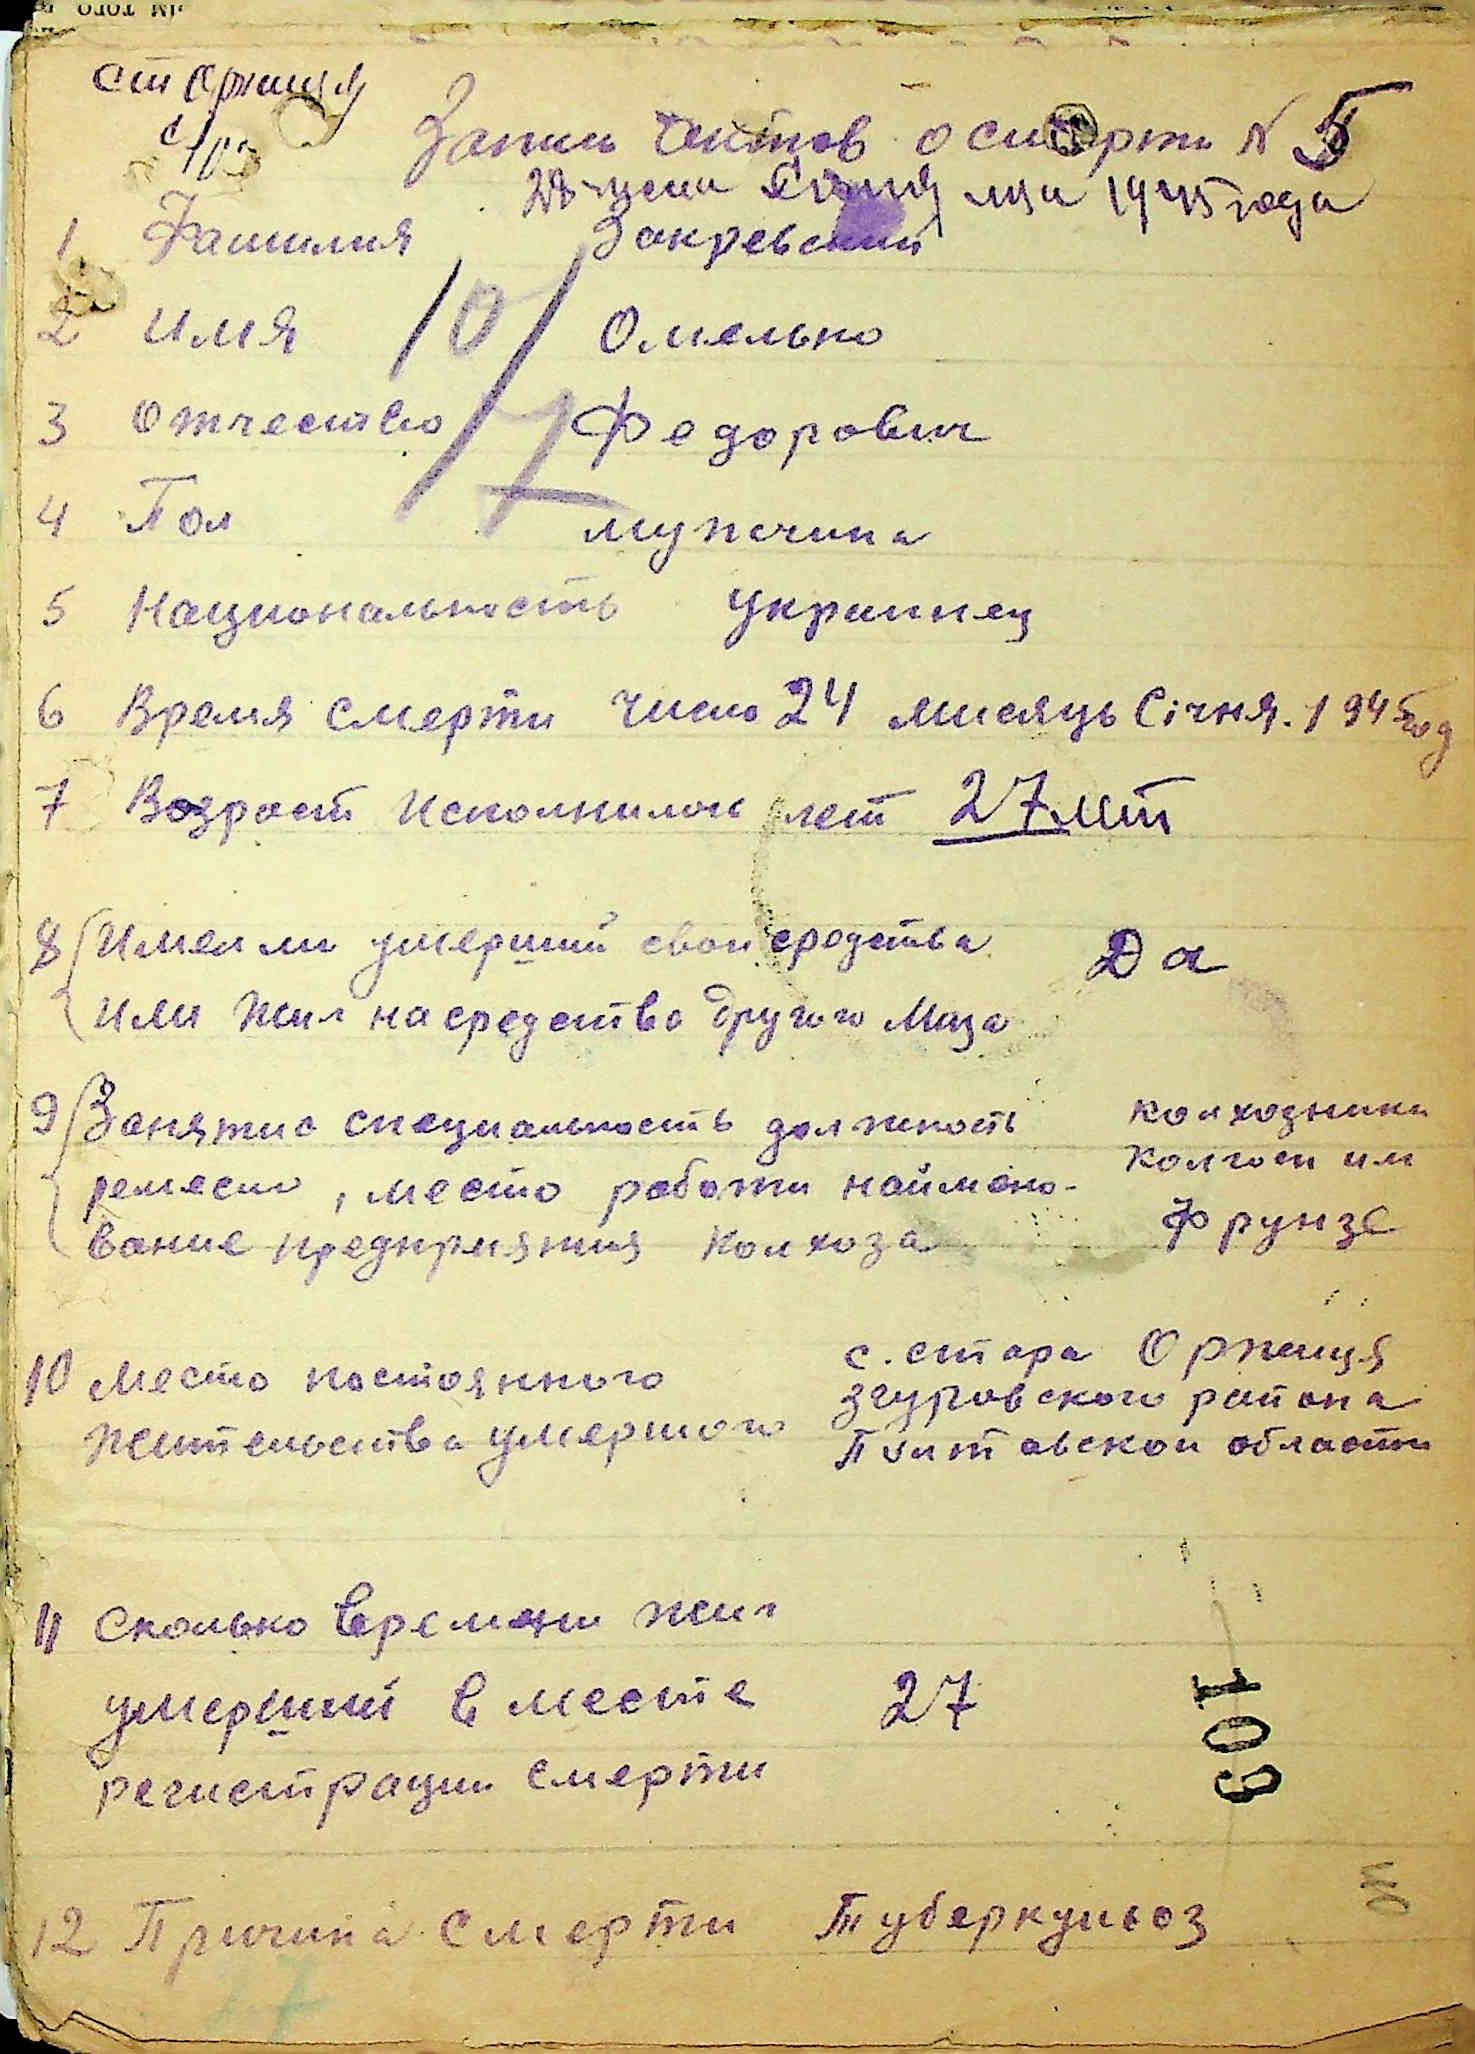 ст Оржиця
Записи Актов о смерти N 5
28 числа Січня мци 1945 года
1 Фамилия Закревский
2 Имя Омелько
3 Отчество Федорович
4 Пол мужчина
5 Национальность украинец
6 Время смерти число 24 мисяць Січня. 1945 год
7 Возраст Исполнилось лет 27 лет
8 Имел ли умерший свои средства Да
или жил на средства другого лица
9 Занятие специальность должность колхозник
ремесло, место работи наймено- колгосп им
вание предприятия колхоза Фрунзе
10 место постоянного с. стара Оржиця
жительства умершого згуровского района
Полтавской области
11 Сколько времени жил
умерший в месте 27
регистрации смерти
12 Причина смерти Туберкульоз
109